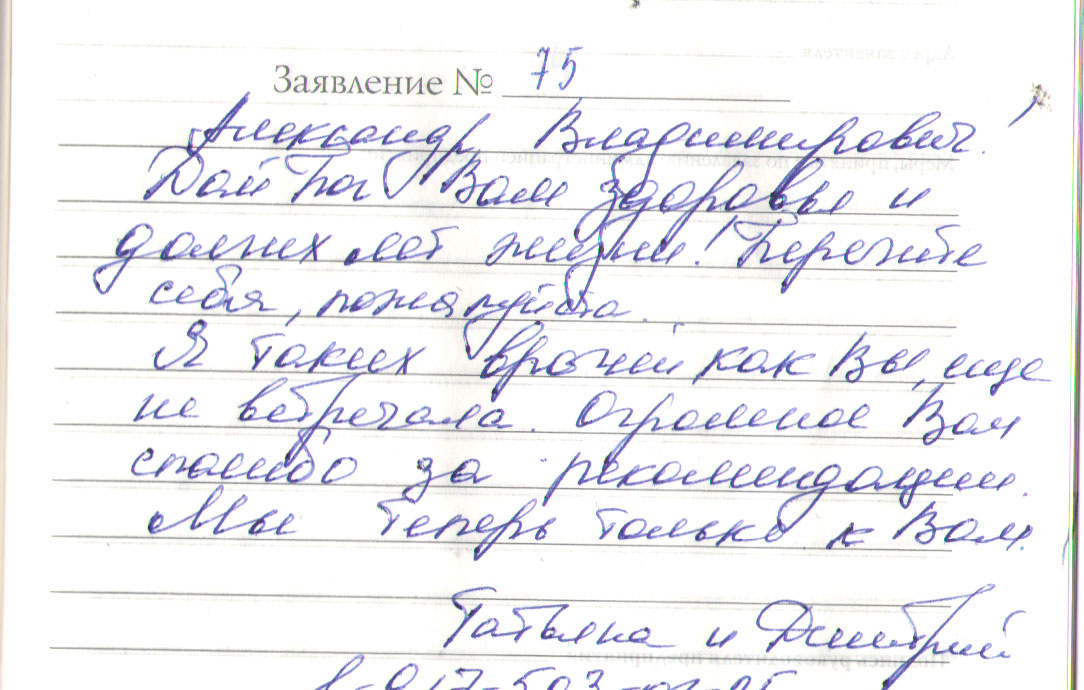 Заявление № 75
Александр Владимирович!
Дай Бог Вам здоровья и
долгих лет жизни! Берегите
себя, пожалуйста.
Я таких врачей, как Вы, еще
не встречала. Огромное Вам
спасибо за рекомендации.
Мы теперь только к Вам.
Татьяна и Дмитрий